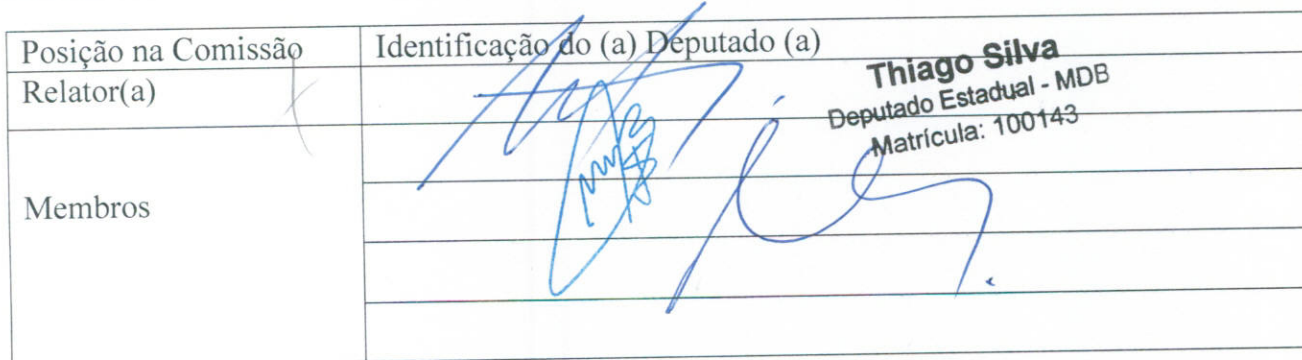 Posição na Comissão Identificação do (a) Deputado (a)
Relator(a)
Thiago Silva
Deputado Estadual - MDB
Matrícula: 100143
Membros